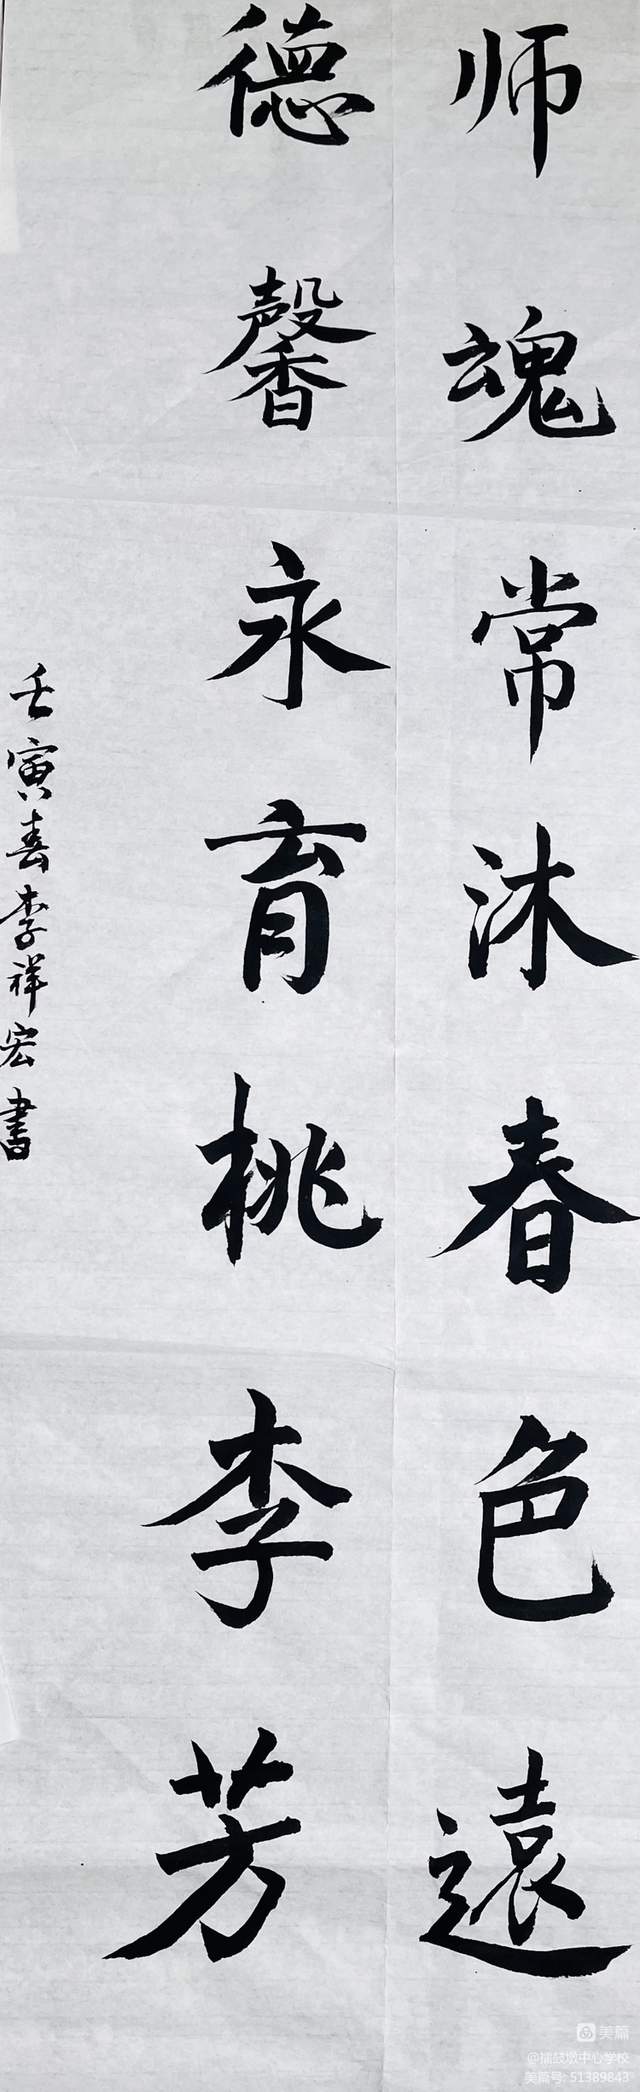 师魂常沐春色遠
德馨永育桃李芳
壬寅春李祥宏書
美篇
@擂鼓墩中心学校
美篇号: 51389843